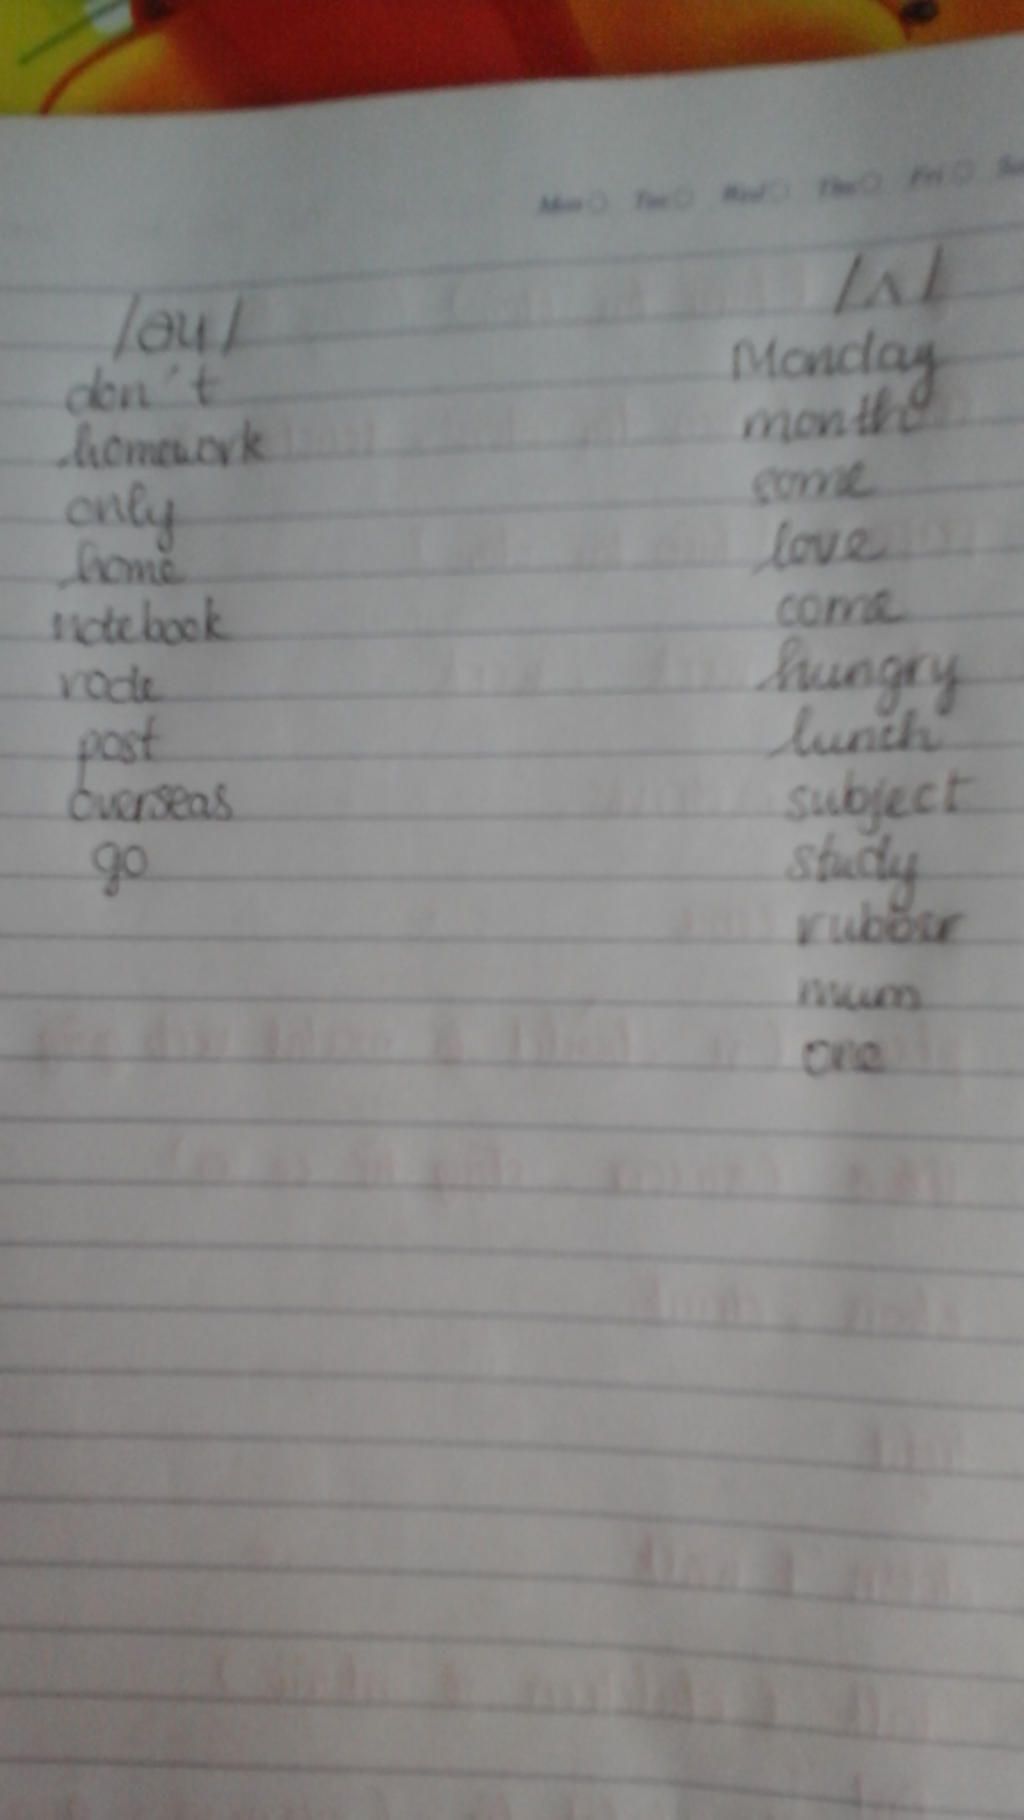 Mon Tue Wed Thu Fri
/əu/
don't
homework
only
home
notebook
rode
post
overseas
go
/ʌ/
Monday
month
some
love
come
hungry
lunch
subject
study
rubber
mum
one